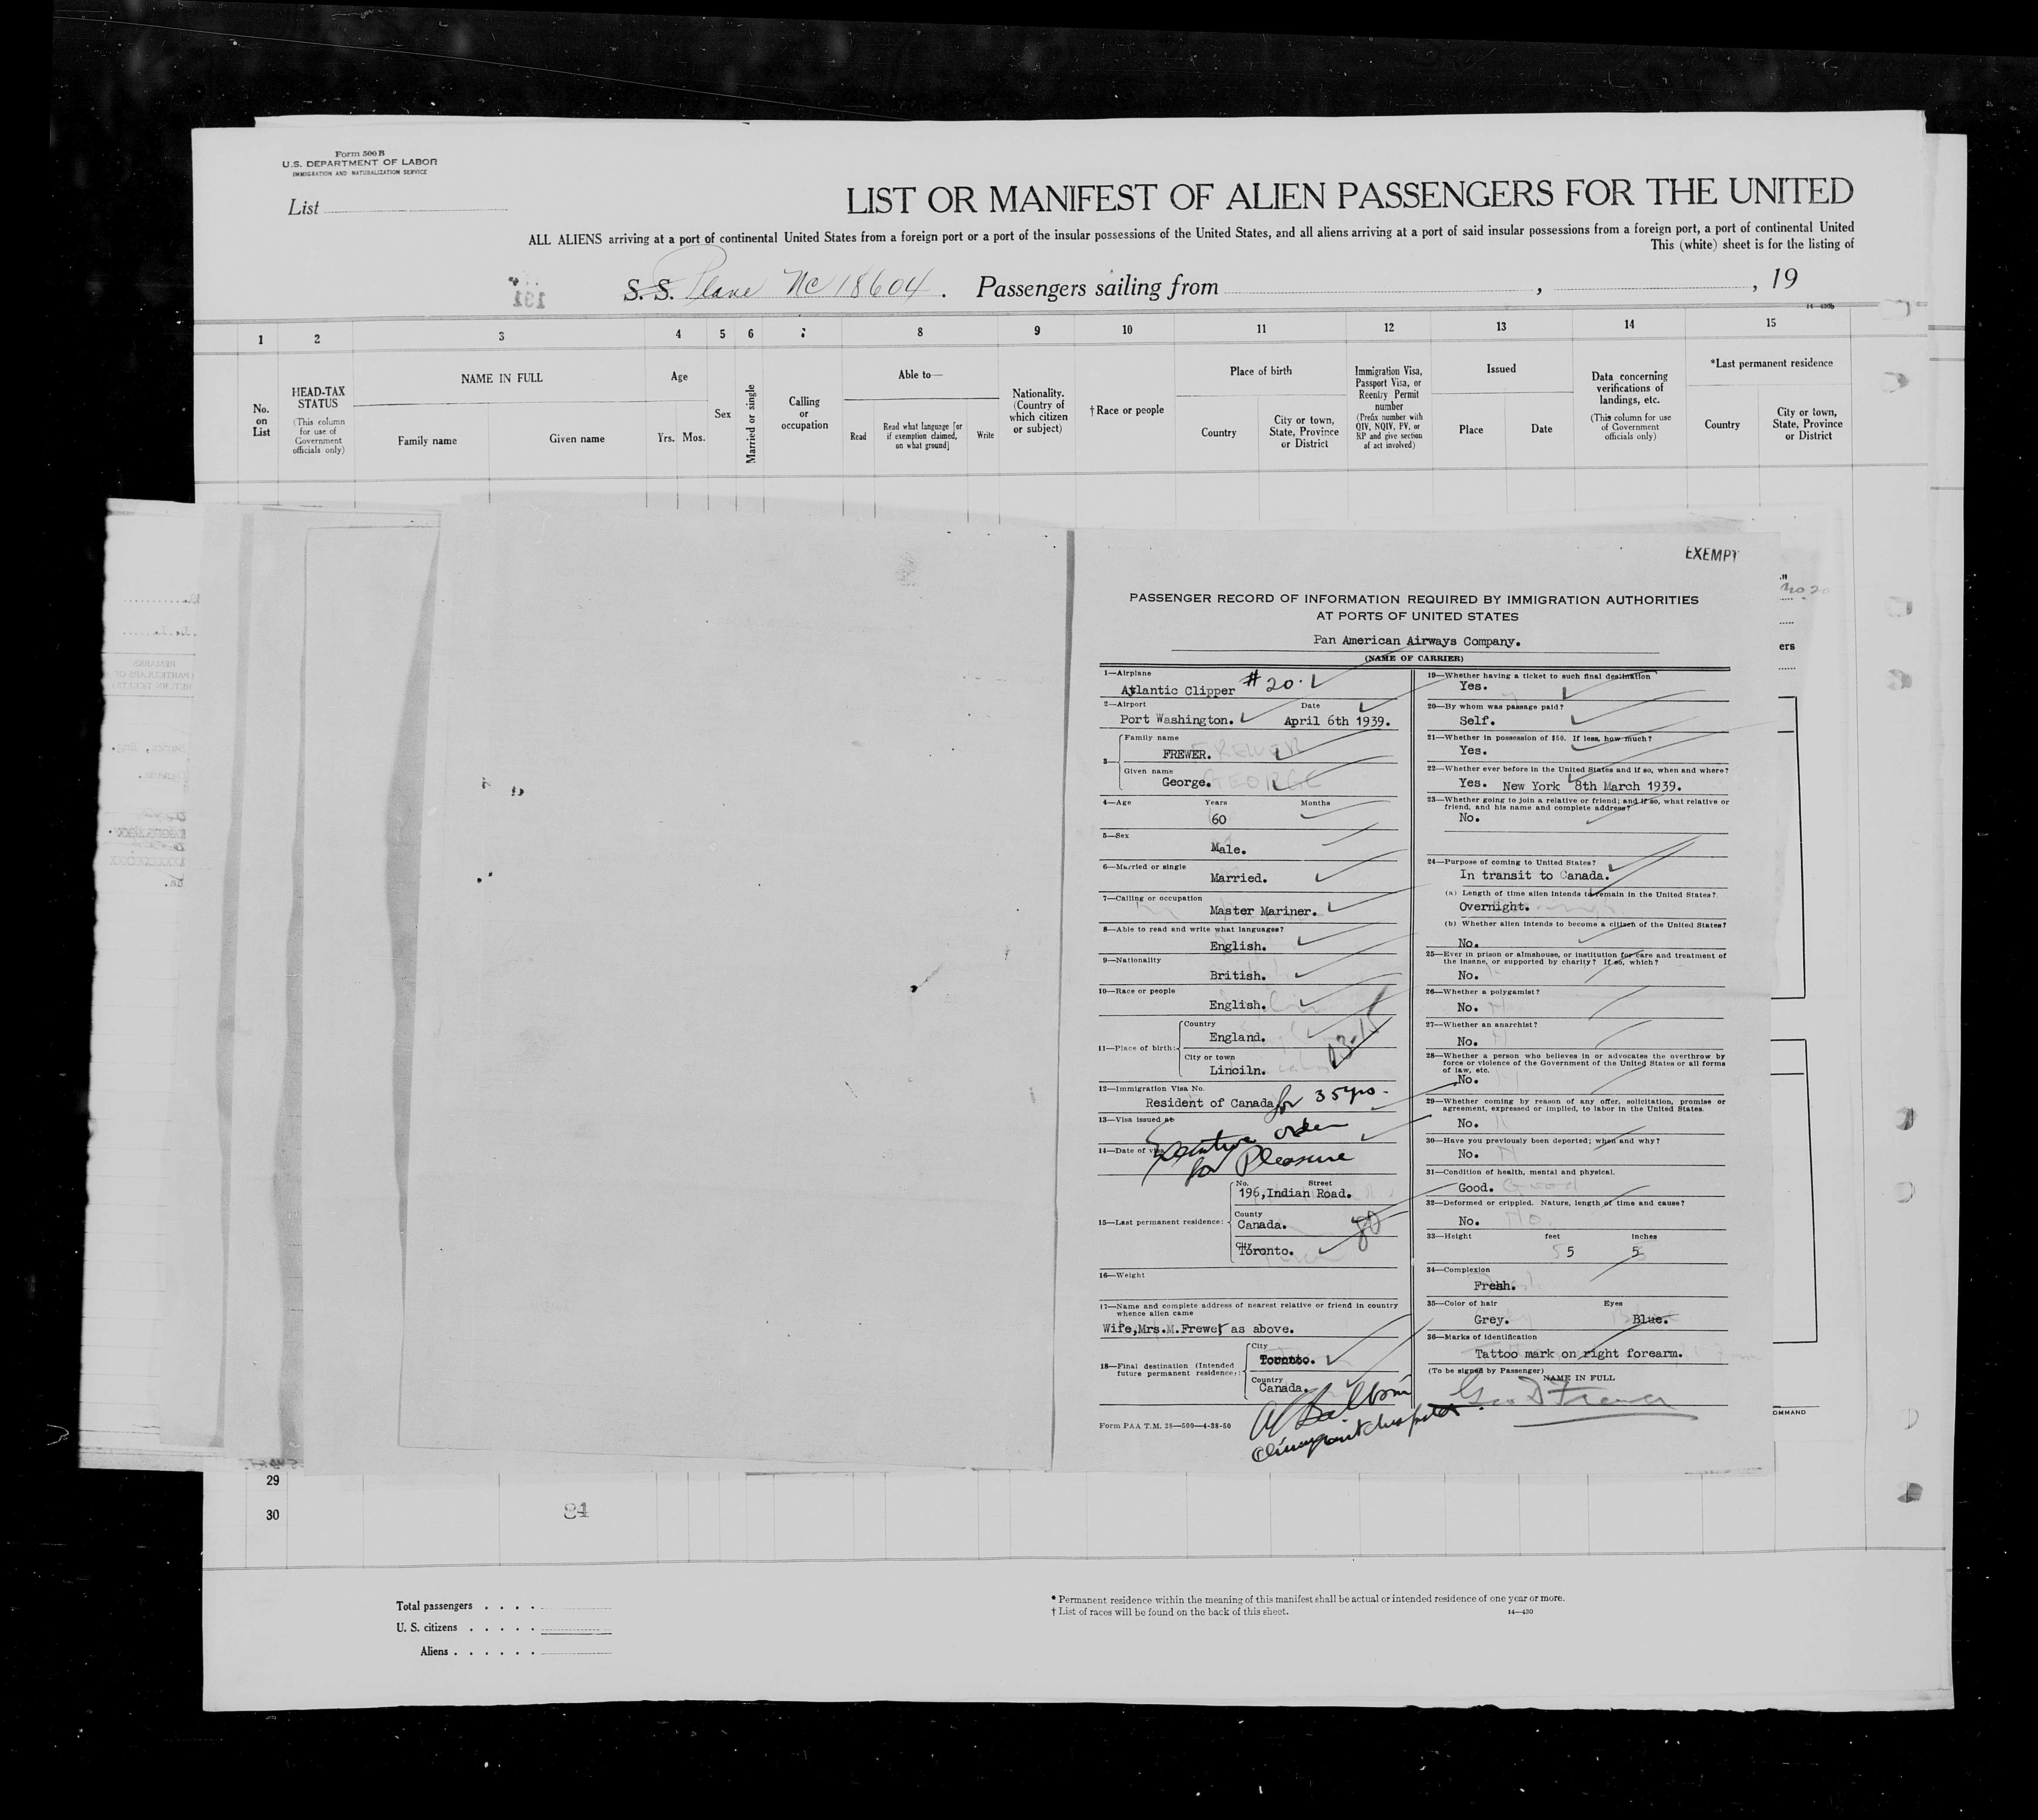 Form 500 B
U.S. DEPARTMENT OF LABOR
IMMIGRATION AND NATURALIZATION SERVICE
List
LIST OR MANIFEST OF ALIEN PASSENGERS FOR THE UNITED
ALL ALIENS arriving at a port of continental United States from a foreign port or a port of the insular possessions of the United States, and all aliens arriving at a port of said insular possessions from a foreign port, a port of continental United
This (white) sheet is for the listing of
191
S. S. Plane NC 18604. Passengers sailing from , , 19
14—430b
1 2 3 4 5 6 7 8 9 10 11 12 13 14 15
No. on List
HEAD-TAX STATUS
(This column for use of Government officials only)
NAME IN FULL
Family name
Given name
Age
Yrs. Mos.
Sex
Married or single
Calling or occupation
Able to—
Read
Read what language [or if exemption claimed, on what ground]
Write
Nationality. (Country of which citizen or subject)
†Race or people
Place of birth
Country
City or town, State, Province or District
Immigration Visa, Passport Visa, or Reentry Permit number
(Prefix number with QIV, NQIV, PV, or RP and give section of act involved)
Issued
Place
Date
Data concerning verifications of landings, etc.
(This column for use of Government officials only)
*Last permanent residence
Country
City or town, State, Province or District
EXEMPT
PASSENGER RECORD OF INFORMATION REQUIRED BY IMMIGRATION AUTHORITIES
AT PORTS OF UNITED STATES
Pan American Airways Company.
(NAME OF CARRIER)
1—Airplane
Atlantic Clipper #20.1
2—Airport Date
Port Washington. April 6th 1939.
3—
Family name
FREWER. FREWER
Given name
George. GEORGE
4—Age Years Months
60
5—Sex
Male.
6—Married or single
Married.
7—Calling or occupation
Master Mariner.
8—Able to read and write what languages?
English.
9—Nationality
British.
10—Race or people
English.
11—Place of birth:
Country
England.
City or town
Lincoln.
13-15
12—Immigration Visa No.
Resident of Canada for 35 yrs.
13—Visa issued at
Executive order
14—Date of visa
for Pleasure
15—Last permanent residence:
No. Street
196,Indian Road.
County
Canada.
City
Toronto.
80
16—Weight
17—Name and complete address of nearest relative or friend in country
whence alien came
Wife,Mrs.M.Frewer as above.
18—Final destination (Intended
future permanent residence):
City
Toronto.
Country
Canada.
Form PAA T.M. 28—500—4-38-50
19—Whether having a ticket to such final destination
Yes.
20—By whom was passage paid?
Self.
21—Whether in possession of $50. If less, how much?
Yes.
22—Whether ever before in the United States and if so, when and where?
Yes. New York 8th March 1939.
23—Whether going to join a relative or friend; and if so, what relative or
friend, and his name and complete address?
No.
24—Purpose of coming to United States?
In transit to Canada.
(a) Length of time alien intends to remain in the United States?
Overnight.
(b) Whether alien intends to become a citizen of the United States?
No.
25—Ever in prison or almshouse, or institution for care and treatment of
the insane, or supported by charity? If so, which?
No.
26—Whether a polygamist?
No.
27—Whether an anarchist?
No.
28—Whether a person who believes in or advocates the overthrow by
force or violence of the Government of the United States or all forms
of law, etc.
No.
29—Whether coming by reason of any offer, solicitation, promise or
agreement, expressed or implied, to labor in the United States.
No.
30—Have you previously been deported; when and why?
No.
31—Condition of health, mental and physical.
Good. Good
32—Deformed or crippled. Nature, length of time and cause?
No. No.
33—Height feet inches
5 5
34—Complexion
Fresh.
35—Color of hair Eyes
Grey. Blue.
36—Marks of identification
Tattoo mark on right forearm.
(To be signed by Passenger)
NAME IN FULL
Geo D Frewer
No. 20
ers
OMMAND
REMARKS
(PARTICULARS OF
RETURN TICKETS)
29
30
84
Total passengers . . . .
U. S. citizens . . . . .
Aliens . . . . . .
* Permanent residence within the meaning of this manifest shall be actual or intended residence of one year or more.
† List of races will be found on the back of this sheet.
14—430